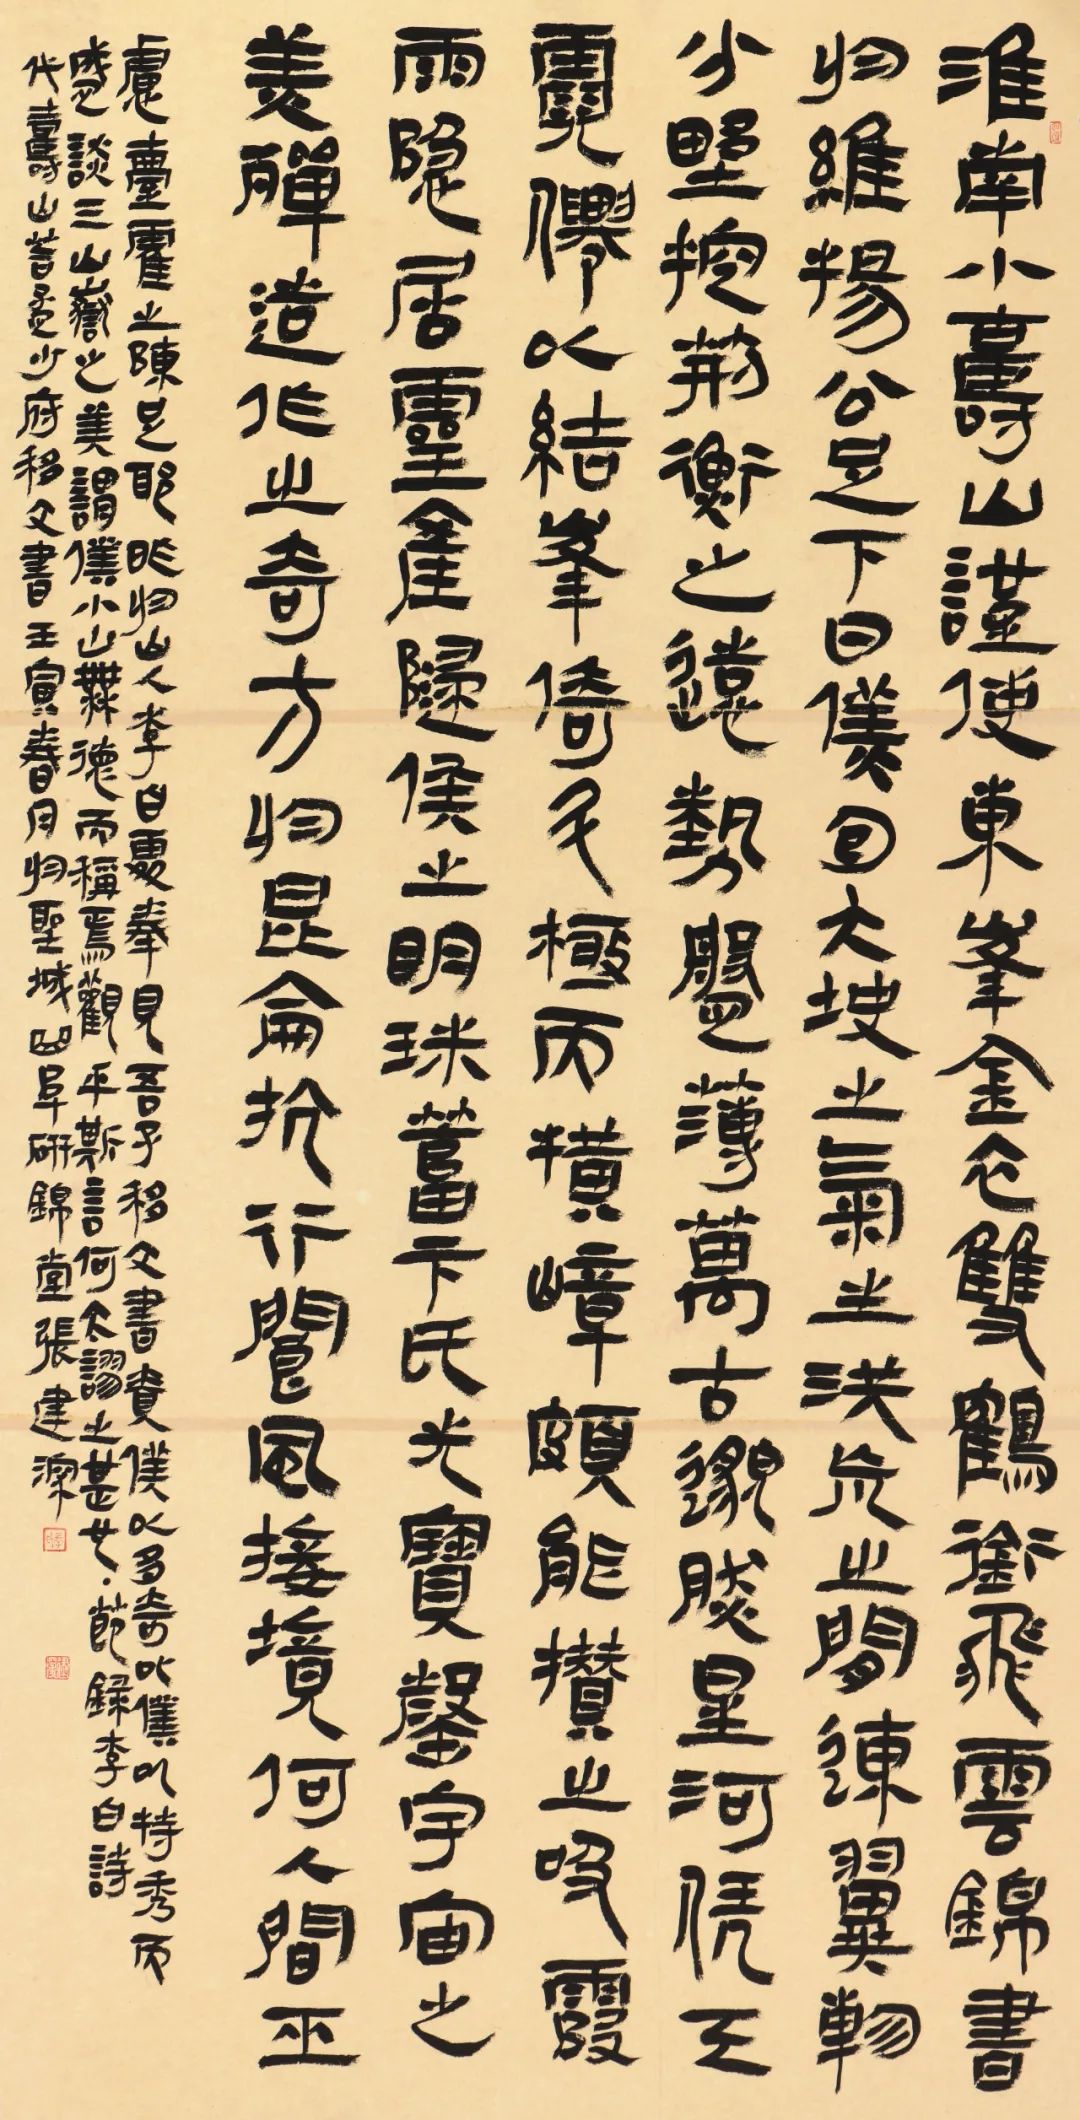 淮南小壽山謹使東峯金衣雙鶴銜飛雲錦書
於維揚公足下曰僕包大塊之氣生洪荒之間連翼軫
分野控荊衡之遠勢盤薄萬古邈然星河凭天
霓以結峯倚斗極而橫嶂頗能攢之吸霞
雨隱居靈產隨侯之明珠蓄卞氏光寶罄宇宙之
美殫造化之奇方於昆侖抗行閬風接境何人間巫
廬臺霍之陳足耶昨於山人李白處奉見吾子移文書責僕以多奇叱僕以特秀而
盛談三山嶽之美謂僕小山無德而稱焉觀乎斯言何太謬之甚也節錄李白詩
代壽山答孟少府移文書壬寅春月於聖城曲阜研錦堂張建